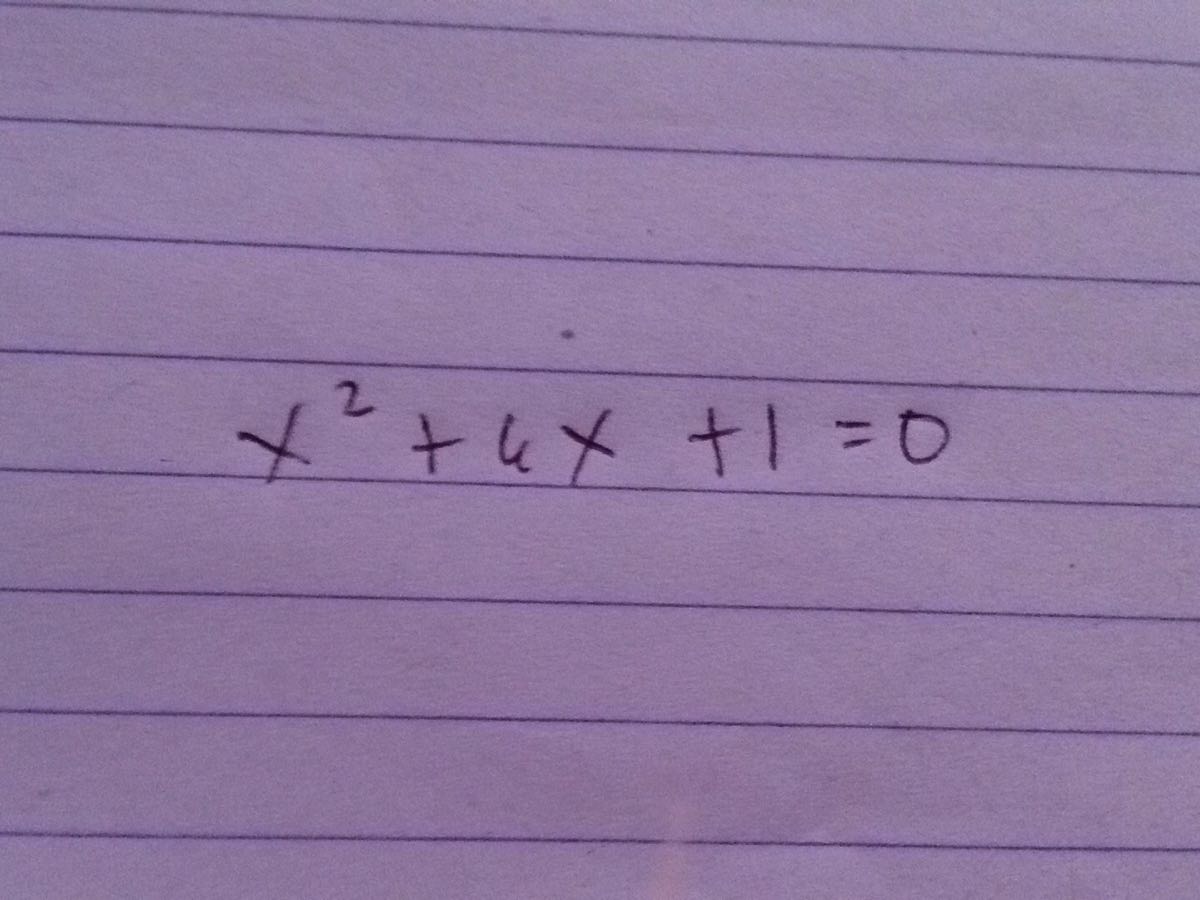 x² + 4x + 1 = 0